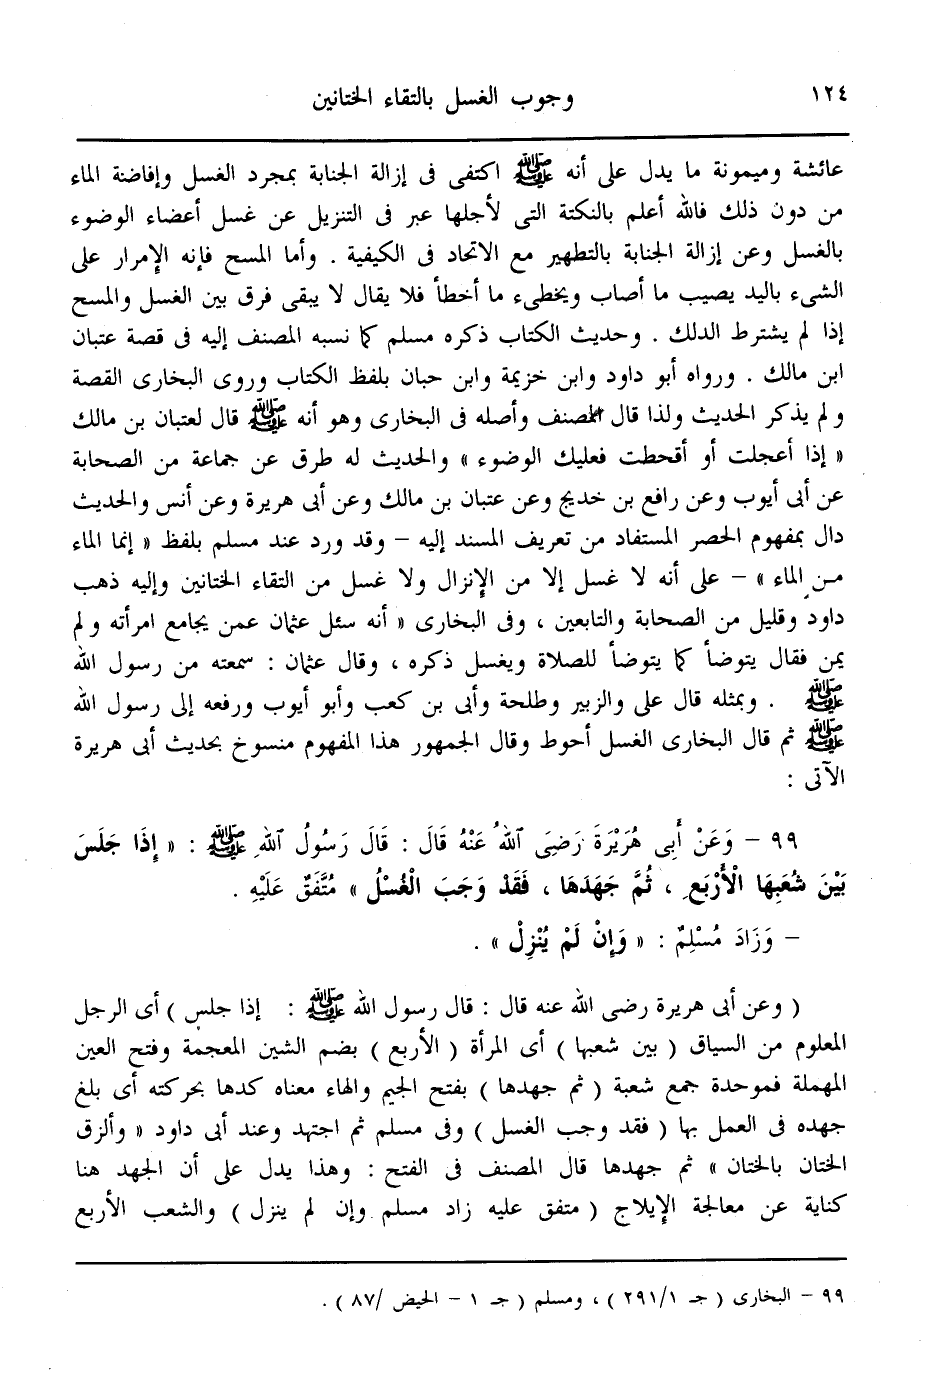 ١٢٤ وجوب الغسل بالتقاء الختانين
عائشة وميمونة ما يدل على أنه ﷺ اكتفى فى إزالة الجنابة بمجرد الغسل وإفاضة الماء
من دون ذلك فالله أعلم بالنكتة التى لأجلها عبر فى التنزيل عن غسل أعضاء الوضوء
بالغسل وعن إزالة الجنابة بالتطهير مع الاتحاد فى الكيفية . وأما المسح فإنه الإمرار على
الشىء باليد يصيب ما أصاب ويخطىء ما أخطأ فلا يقال لا يبقى فرق بين الغسل والمسح
إذا لم يشترط الدلك . وحديث الكتاب ذكره مسلم كما نسبه المصنف إليه فى قصة عتبان
ابن مالك . ورواه أبو داود وابن خزيمة وابن حبان بلفظ الكتاب وروى البخارى القصة
ولم يذكر الحديث ولذا قال المصنف وأصله فى البخارى وهو أنه ﷺ قال لعتبان بن مالك
« إذا أعجلت أو أقحطت فعليك الوضوء » والحديث له طرق عن جماعة من الصحابة
عن أبى أيوب وعن رافع بن خديج وعن عتبان بن مالك وعن أبى هريرة وعن أنس والحديث
دال بمفهوم الحصر المستفاد من تعريف المسند إليه – وقد ورد عند مسلم بلفظ « إنما الماء
من الماء » – على أنه لا غسل إلا من الإنزال ولا غسل من التقاء الختانين وإليه ذهب
داود وقليل من الصحابة والتابعين ، وفى البخارى « أنه سئل عثمان عمن يجامع امرأته ولم
يمن فقال يتوضأ كما يتوضأ للصلاة ويغسل ذكره ، وقال عثمان : سمعته من رسول الله
ﷺ . وبمثله قال على والزبير وطلحة وأبى بن كعب وأبو أيوب ورفعه إلى رسول الله
ﷺ ثم قال البخارى الغسل أحوط وقال الجمهور هذا المفهوم منسوخ بحديث أبى هريرة
الآتى :
٩٩ – وَعَنْ أَبِى هُرَيْرَةَ رَضِىَ ٱللهُ عَنْهُ قَالَ : قَالَ رَسُولُ ٱللهِ ﷺ : « إِذَا جَلَسَ
بَيْنَ شُعَبِهَا الْأَرْبَعِ ، ثُمَّ جَهَدَهَا ، فَقَدْ وَجَبَ الْغُسْلُ » مُتَّفَقٌ عَلَيْهِ .
– وَزَادَ مُسْلِمٌ : « وَإِنْ لَمْ يُنْزِلْ » .
( وعن أبى هريرة رضى الله عنه قال : قال رسول الله ﷺ : إذا جلس ) أى الرجل
المعلوم من السياق ( بين شعبها ) أى المرأة ( الأربع ) بضم الشين المعجمة وفتح العين
المهملة فموحدة جمع شعبة ( ثم جهدها ) بفتح الجيم والهاء معناه كدها بحركته أى بلغ
جهده فى العمل بها ( فقد وجب الغسل ) وفى مسلم ثم اجتهد وعند أبى داود « وألزق
الختان بالختان » ثم جهدها قال المصنف فى الفتح : وهذا يدل على أن الجهد هنا
كناية عن معالجة الإيلاج ( متفق عليه زاد مسلم وإن لم ينزل ) والشعب الأربع
٩٩ – البخارى ( جـ ٢٩١/١ ) ، ومسلم ( جـ ١ – الحيض /٨٧ ) .